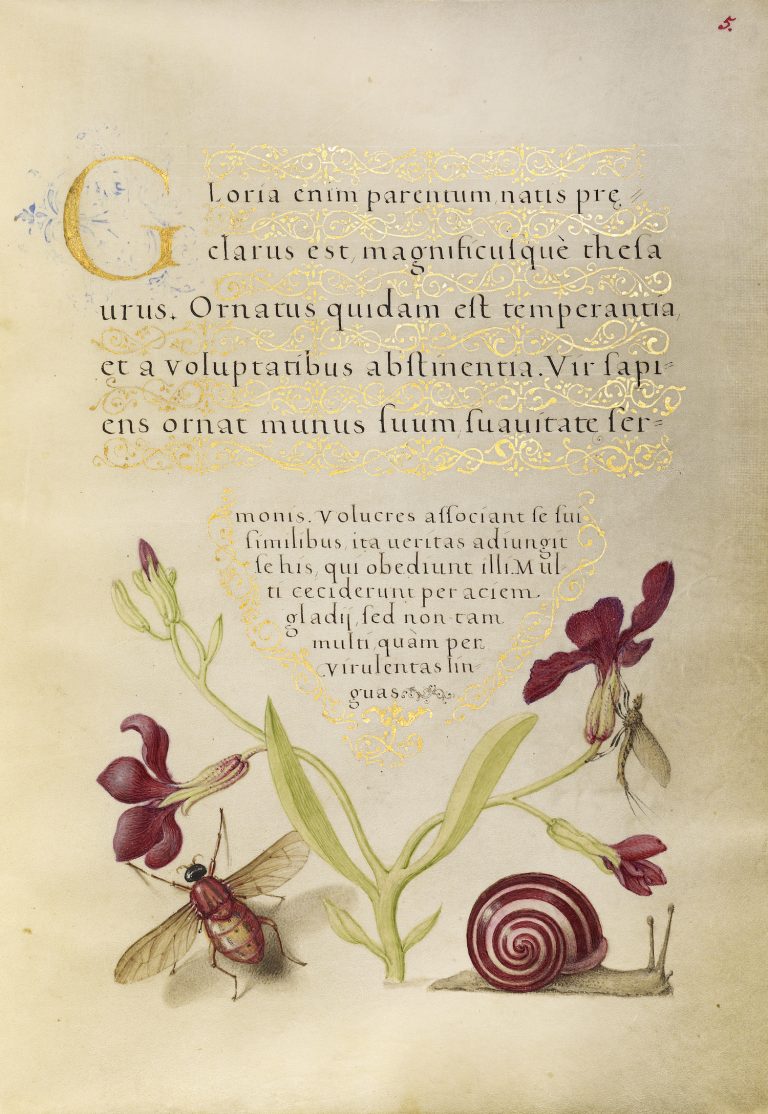 5.
GLoria enim parentum, natis prę⸗
clarus est, magnificuſquè theſa
urus. Ornatus quidam eſt temperantia,
et a voluptatibus abſtinentia. Vir ſapi⸗
ens ornat munus ſuum, ſuauitate ſer⸗
monis. Volucres aſſociant ſe ſui
ſimilibus, ita ueritas adiungit
ſe his, qui obediunt illi. Mul⸗
ti ceciderunt per aciem
gladij, ſed non tam
multi, quàm per
virulentas lin⸗
guas.